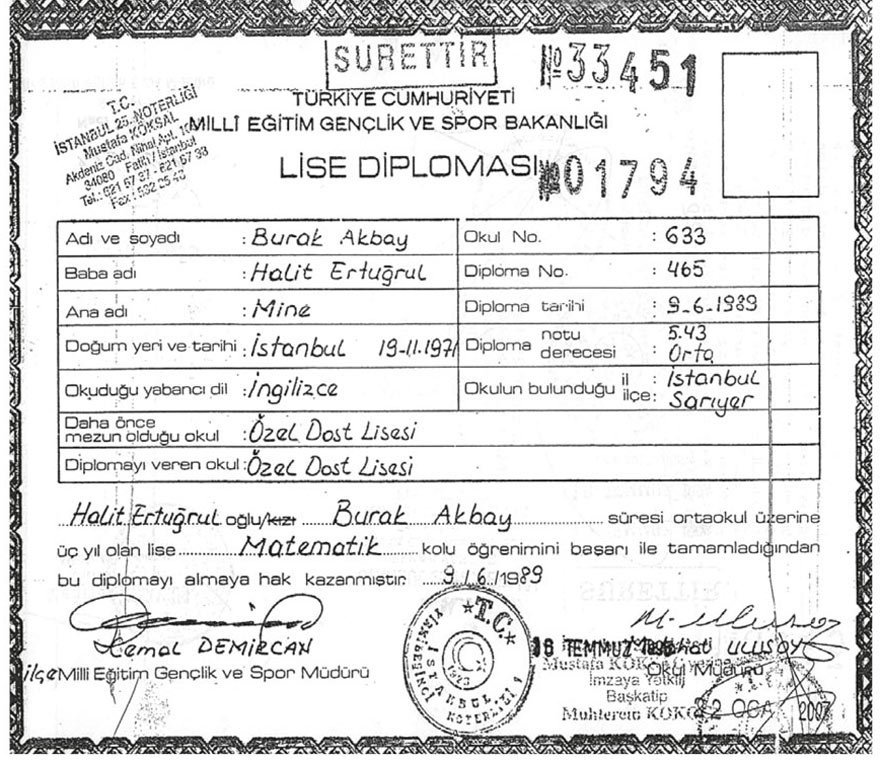 SURETTİR
№33451
T.C.
İSTANBUL 25. NOTERLİĞİ
Mustafa KÖKSAL
Akdeniz Cad. Nihal Apt.
34080 Fatih / İstanbul
Tel.: 621 67 37 - 621 67 38
Fax: 532 25 43
TÜRKİYE CUMHURİYETİ
MİLLÎ EĞİTİM GENÇLİK VE SPOR BAKANLIĞI
LİSE DİPLOMASI
№01794
Adı ve soyadı : Burak Akbay
Okul No. : 633
Baba adı : Halit Ertuğrul
Diploma No. : 465
Ana adı : Mine
Diploma tarihi : 9-6-1989
Doğum yeri ve tarihi : İstanbul 19-11-1971
Diploma notu 5.43
derecesi : Orta
Okuduğu yabancı dil : İngilizce
Okulun bulunduğu il : İstanbul
ilçe: Sarıyer
Daha önce
mezun olduğu okul : Özel Dost Lisesi
Diplomayı veren okul : Özel Dost Lisesi
Halit Ertuğrul oğlu/kızı Burak Akbay süresi ortaokul üzerine
üç yıl olan lise Matematik kolu öğrenimini başarı ile tamamladığından
bu diplomayı almaya hak kazanmıştır. 9/6/1989
Kemal DEMİRCAN
ilçe Milli Eğitim Gençlik ve Spor Müdürü
T.C.
İSTANBUL
YİRMİBEŞİNCİ NOTERLİĞİ
TEMMUZ
ULUSOY
Okul Müdürü
İmzaya Yetkili
Başkatip
Muhterem
2 OCA 2007